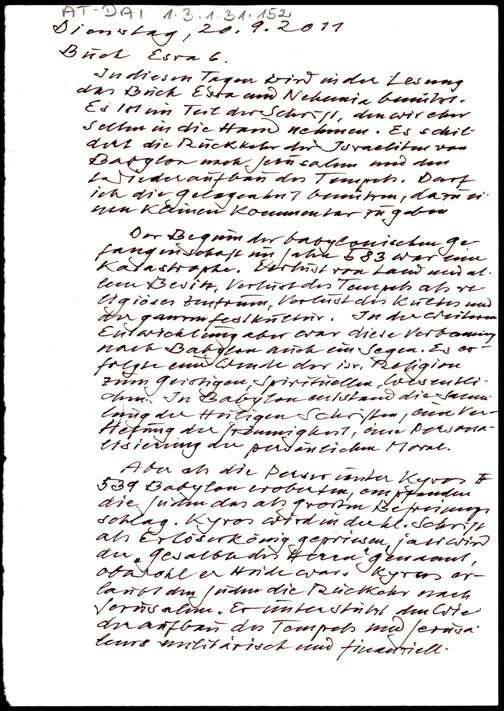 AT-DAI 1.3.1.31.152
Dienstag, 20.9.2011
Buch Esra 6.
In diesen Tagen wird in der Lesung
das Buch Esra und Nehemia benützt.
Es ist ein Teil der Schrift, den wir eher
selten in die Hand nehmen. Es schil-
dert die Rückkehr der Israeliten von
Babylon nach Jerusalem und den
Wiederaufbau des Tempels. Darf
ich die Gelegenheit benützen, dazu ei-
nen kleinen Kommentar zu geben
Der Beginn der babylonischen Ge-
fangenschaft im Jahre 583 war eine
Katastrophe. Verlust von Land und al-
lem Besitz, Verlust des Tempels als re-
ligiöses Zentrum, Verlust des Kultes und
der ganzen Festkultur. In der weiteren
Entwicklung aber war diese Verbannung
nach Babylon auch ein Segen. Es er-
folgte eine Wende der isr. Religion
zum Geistigen, Spirituellen, Wesentli-
chen. In Babylon entstand die Samm-
lung der Heiligen Schriften, eine Ver-
tiefung der Frömmigkeit, eine Persona-
lisierung der persönlichen Moral.
Aber als die Perser unter Kyros II
539 Babylon eroberten, empfanden
die Juden das als grossen Befreiungs
schlag. Kyros wird in der hl. Schrift
als Erlöserkönig gepriesen, ja er wird
der "Gesalbte des Herrn" genannt,
obwohl er Heide war. Kyros er-
laubt den Juden die Rückkehr nach
Jerusalem. Er unterstützt den Wie
deraufbau des Tempels und Jerusa-
lems militärisch und finanziell.